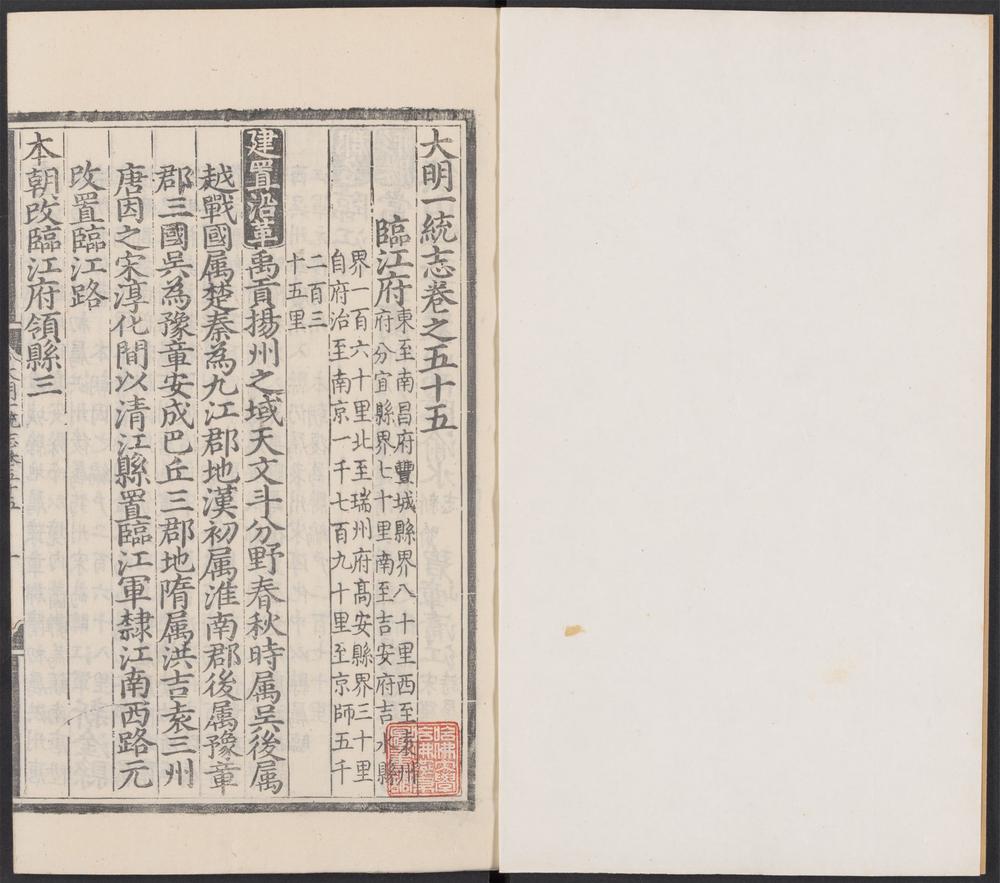 大明一統志卷之五十五
臨江府
東至南昌府豐城縣界八十里西至袁州
府分宜縣界七十里南至吉安府吉水縣
界一百六十里北至瑞州府髙安縣界三十里
自府治至南京一千七百九十里至京師五千
二百三
十五里
建置沿革禹貢揚州之域天文斗分野春秋時属吳後属
越戰國属楚秦為九江郡地漢初属淮南郡後属豫章
郡三國吳為豫章安成巴丘三郡地隋属洪吉袁三州
唐因之宋淳化間以清江縣置臨江軍隸江南西路元
改置臨江路
本朝改臨江府領縣三